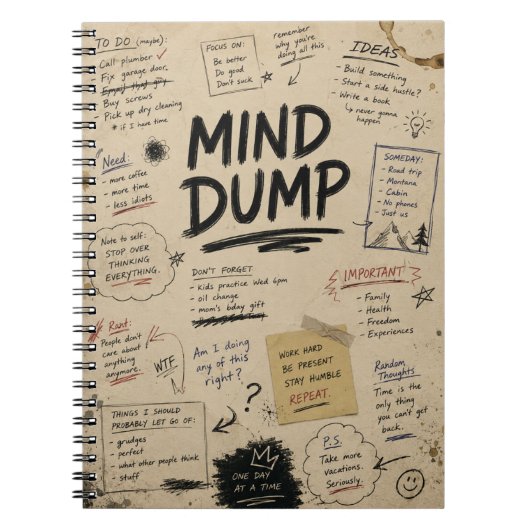 TO DO (maybe):
Call plumber
Fix garage door
Email that guy?
Buy screws
Pick up dry cleaning
* if I have time
FOCUS ON:
Be better
Do good
Don't suck
remember
why you're
doing all this.
IDEAS
- Build something
- Start a side hustle?
- Write a book
↳ never gonna
happen
MIND
DUMP
Need:
- more coffee
- more time
- less idiots
SOMEDAY:
- Road trip
- Montana
- Cabin
- No phones
- Just us
Note to self:
STOP OVER
THINKING
EVERYTHING.
DON'T FORGET
- Kids practice Wed 6pm
- oil change
- mom's bday gift
IMPORTANT
- Family
- Health
- Freedom
- Experiences
Rant:
People don't
care about
anything
anymore.
WTF
Am I doing
any of this
right?
?
WORK HARD
BE PRESENT
STAY HUMBLE
REPEAT.
Random
Thoughts
Time is the
only thing
you can't get
back.
THINGS I SHOULD
PROBABLY LET GO OF:
- grudges
- perfect
- what other people think
- stuff
ONE DAY
AT A TIME
P.S.
Take more
vacations.
Seriously.